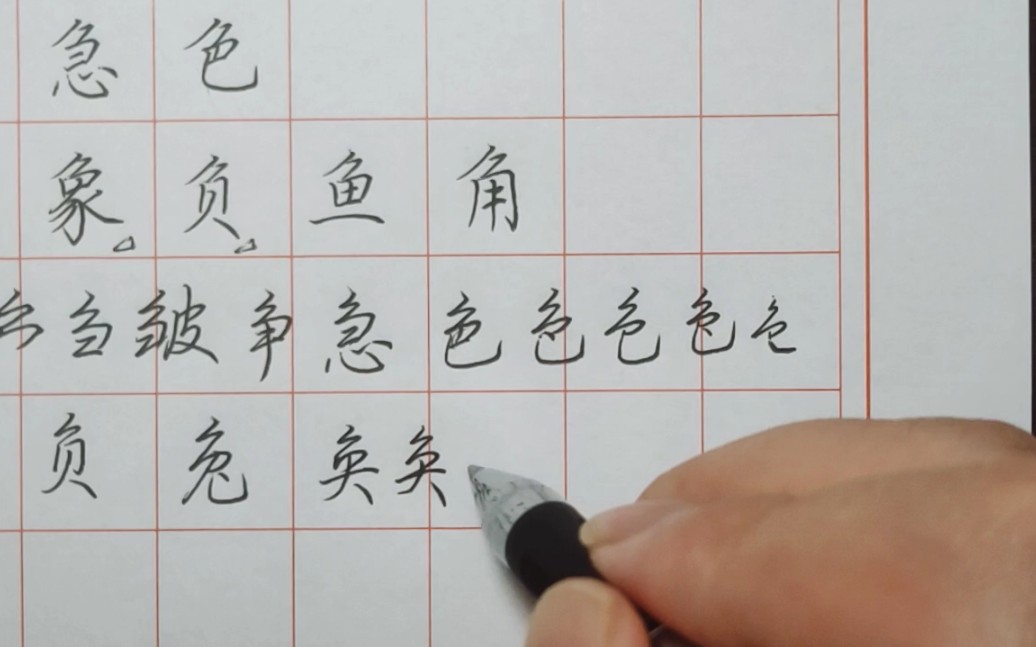 急 色
象 负 鱼 角
刍 皱 争 急 色 色 色 色 色
负 兔 奂 奂